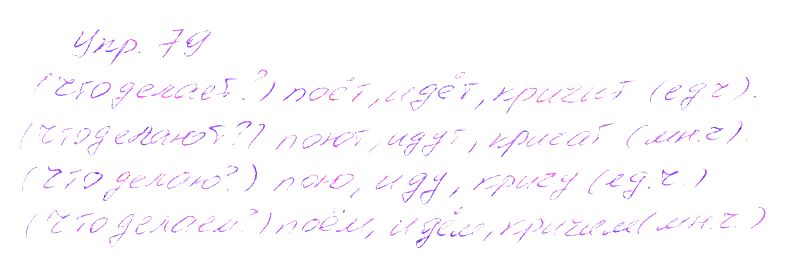 Упр. 79
(Что делает?) поёт, идёт, кричит (ед.ч).
(что делают?) поют, идут, кричат (мн.ч).
(Что делаю?) пою, иду, кричу (ед.ч.)
(Что делаем?) поём, идём, кричим (мн.ч.)